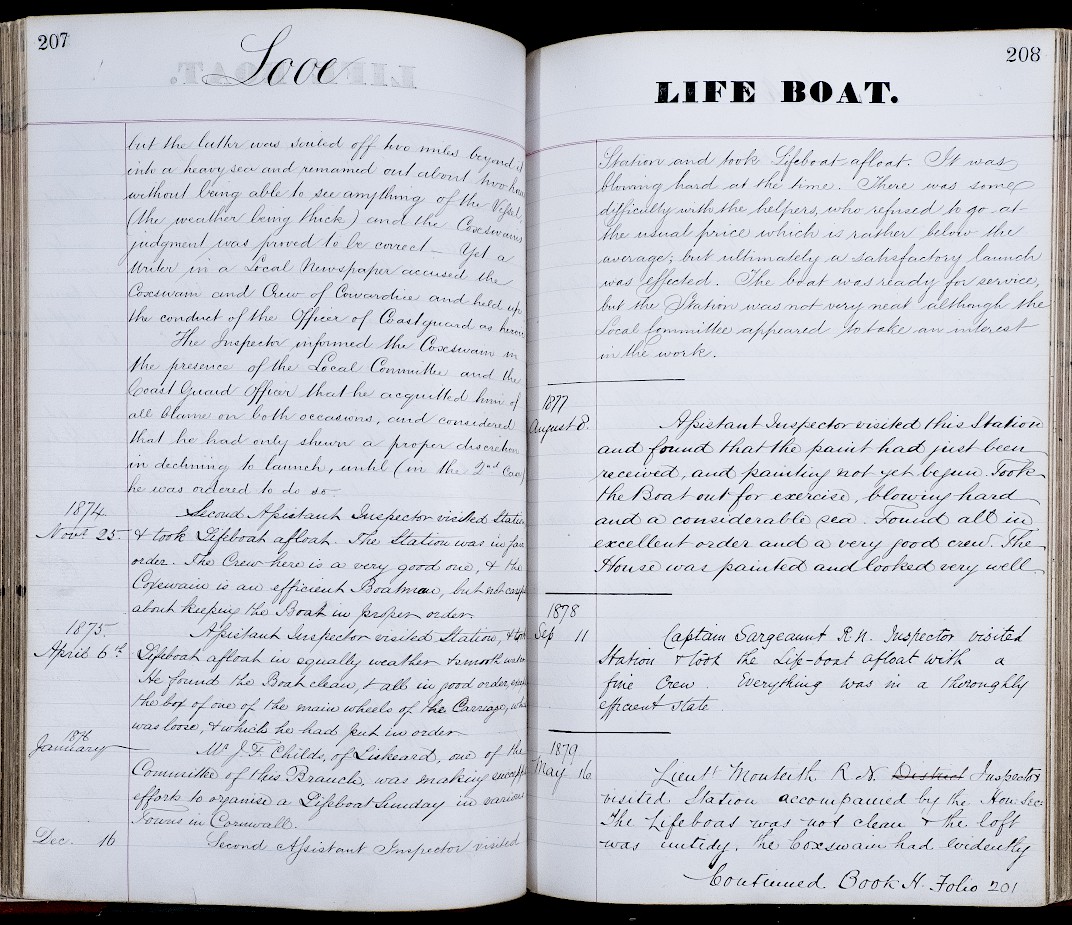 207
Looe
but the latter was sailed off two miles beyond it
into a heavy sea and remained out about two hours
without being able to see anything of the Vessel,
(the weather being thick) and the Coxswains
judgment was proved to be correct — Yet a
writer in a Local Newspaper accused the
Coxswain and Crew of Cowardice and held up
the conduct of the Officer of Coastguard as heroic
The Inspector informed the Coxswain in
the presence of the Local Committee and the
Coast Guard Officer that he acquitted him of
all blame on both occasions, and considered
that he had only shewn a proper discretion
in declining to launch, until (in the 2nd Case)
he was ordered to do so.
1874
Novr 25
Second Assistant Inspector visited Station
& took Lifeboat afloat. The Station was in fair
order. The Crew here is a very good one, & the
Coxswain is an efficient Boatman, but not
about keeping the Boat in proper order.
1875.
April 6th
Assistant Inspector visited Station, & took
Lifeboat afloat in squally weather & smooth water
He found the Boat clean, & all in good order,
the box of one of the main wheels of the Carriage, which
was loose, & which he had put in order
1876
January
Mr J. F. Childs, of Liskeard, one of the
Committee of this Branch, was making
efforts to organise a Lifeboat Sunday in various
Towns in Cornwall.
Dec. 16
Second Assistant Inspector visited
208
LIFE BOAT.
Station and took Lifeboat afloat. It was
blowing hard at the time. There was some
difficulty with the helpers, who refused to go at
the usual price which is rather below the
average; but ultimately a satisfactory launch
was effected. The boat was ready for service,
but the Station was not very neat although the
Local Committee appeared to take an interest
in the work.
1877
August 8.
Assistant Inspector visited this Station
and found that the paint had just been
received, and painting not yet begun. Took
the Boat out for exercise, blowing hard
and a considerable sea. Found all in
excellent order and a very good crew. The
House was painted and looked very well.
1878
Sep 11
Captain Sargeaunt R.N. Inspector visited
Station & took the Life-boat afloat with a
fine Crew. Everything was in a thoroughly
efficient state.
1879
May 16
Lieut Monteith R N District Inspector
visited Station accompanied by the Hon Sec:
The Lifeboat was not clean & the loft
was untidy. The Coxswain had evidently
Continued. Book H. Folio 201